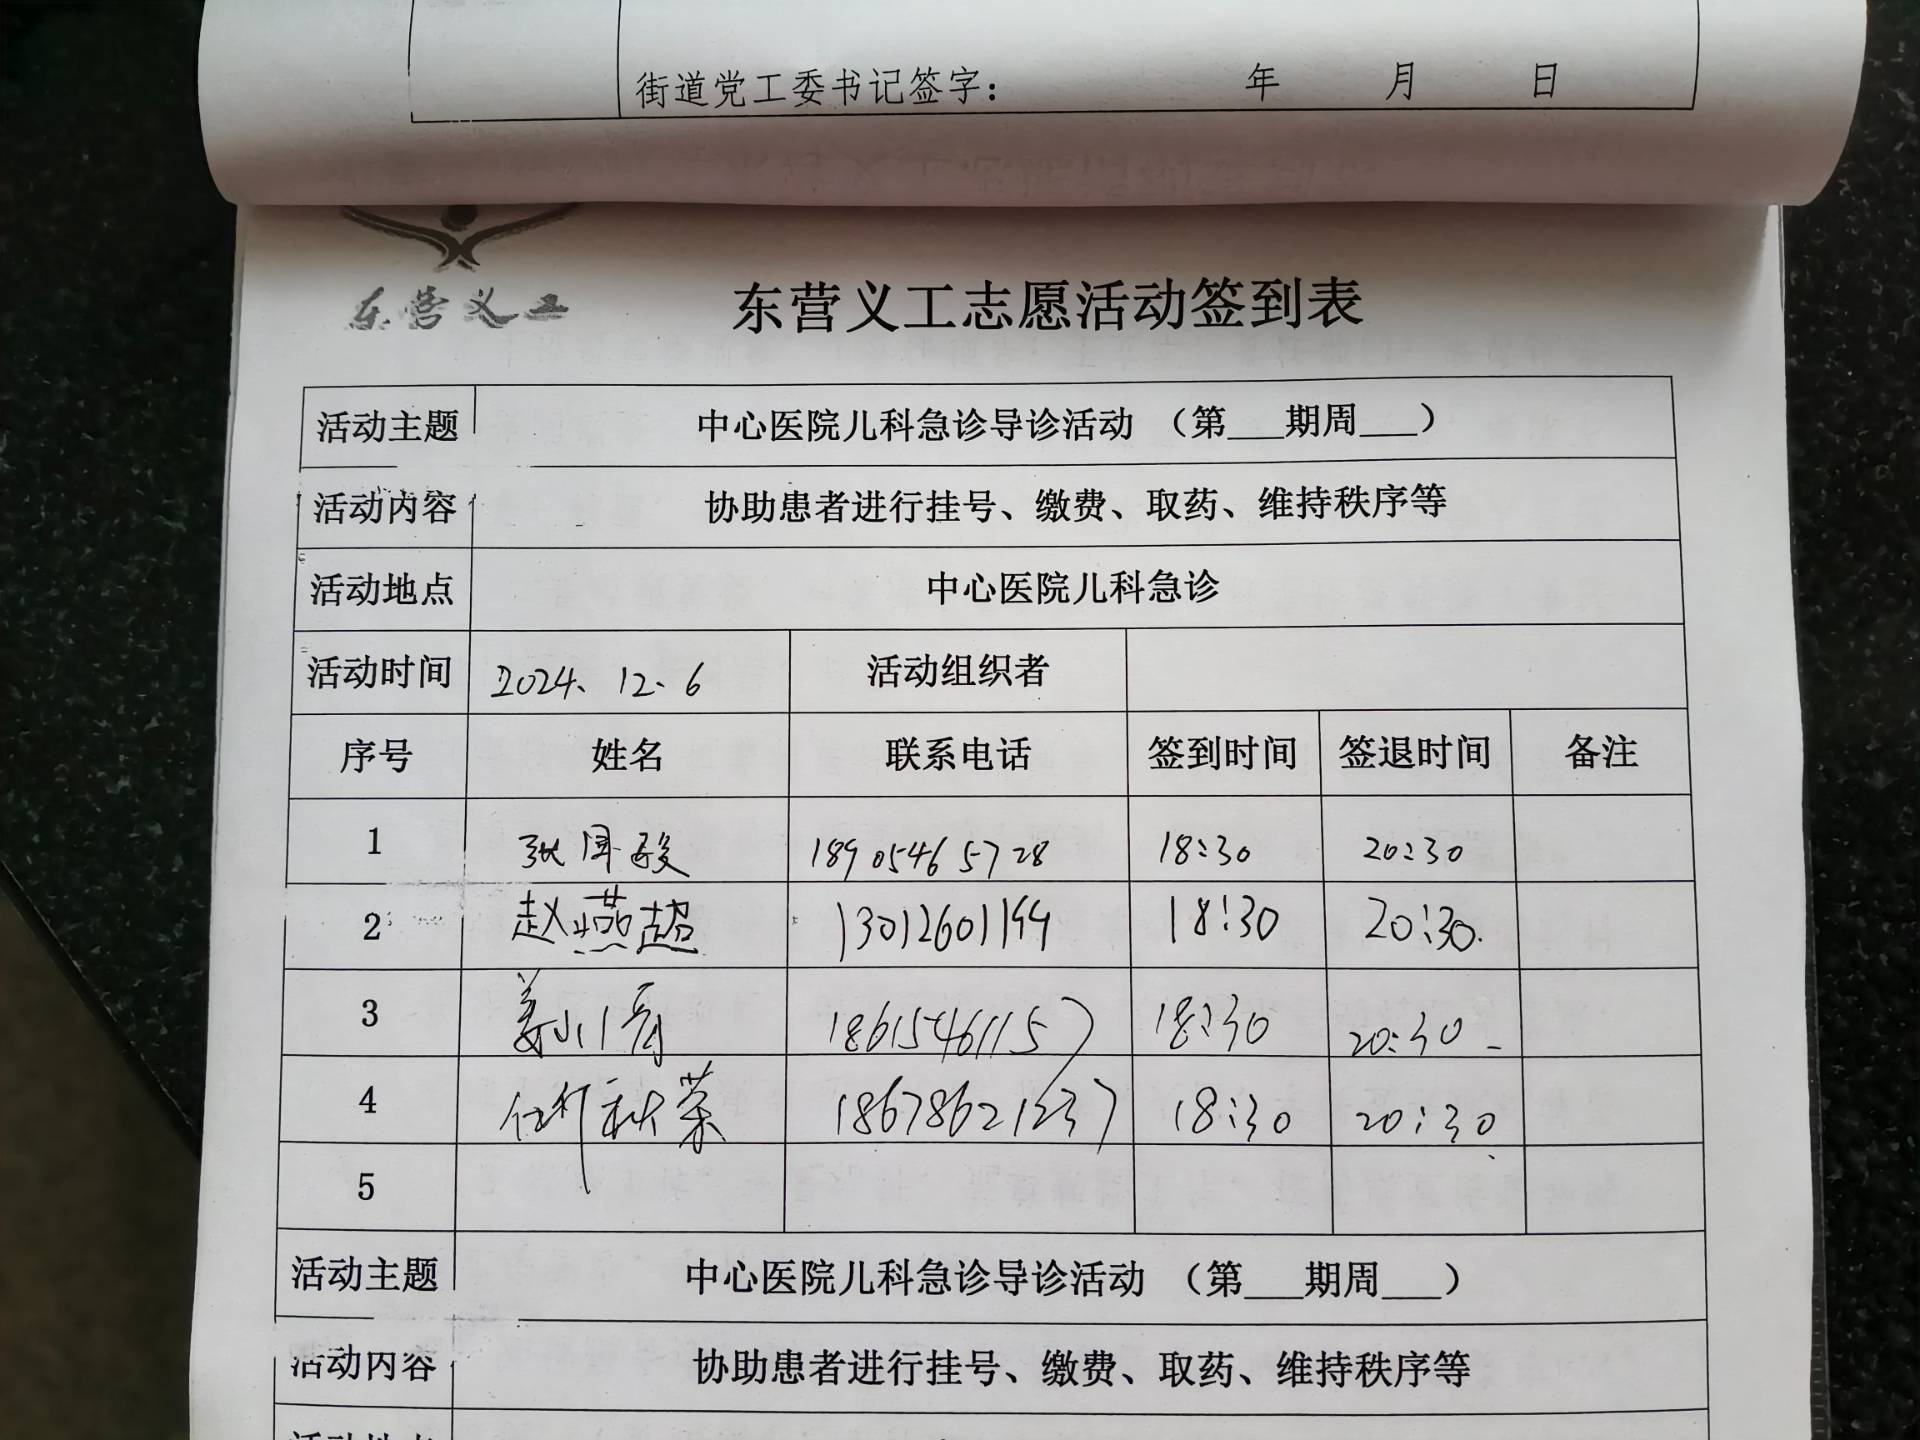 街道党工委书记签字： 年 月 日
东营义工
东营义工志愿活动签到表
活动主题 中心医院儿科急诊导诊活动 （第___期周___）
活动内容 协助患者进行挂号、缴费、取药、维持秩序等
活动地点 中心医院儿科急诊
活动时间 2024、12、6 活动组织者
序号 姓名 联系电话 签到时间 签退时间 备注
1 张国毅 18905465728 18:30 20:30
2 赵燕超 13012601199 18:30 20:30.
3 姜小 18615461157 18:30 20:30
4 秋荣 18678621237 18:30 20:30
5
活动主题 中心医院儿科急诊导诊活动 （第___期周___）
活动内容 协助患者进行挂号、缴费、取药、维持秩序等